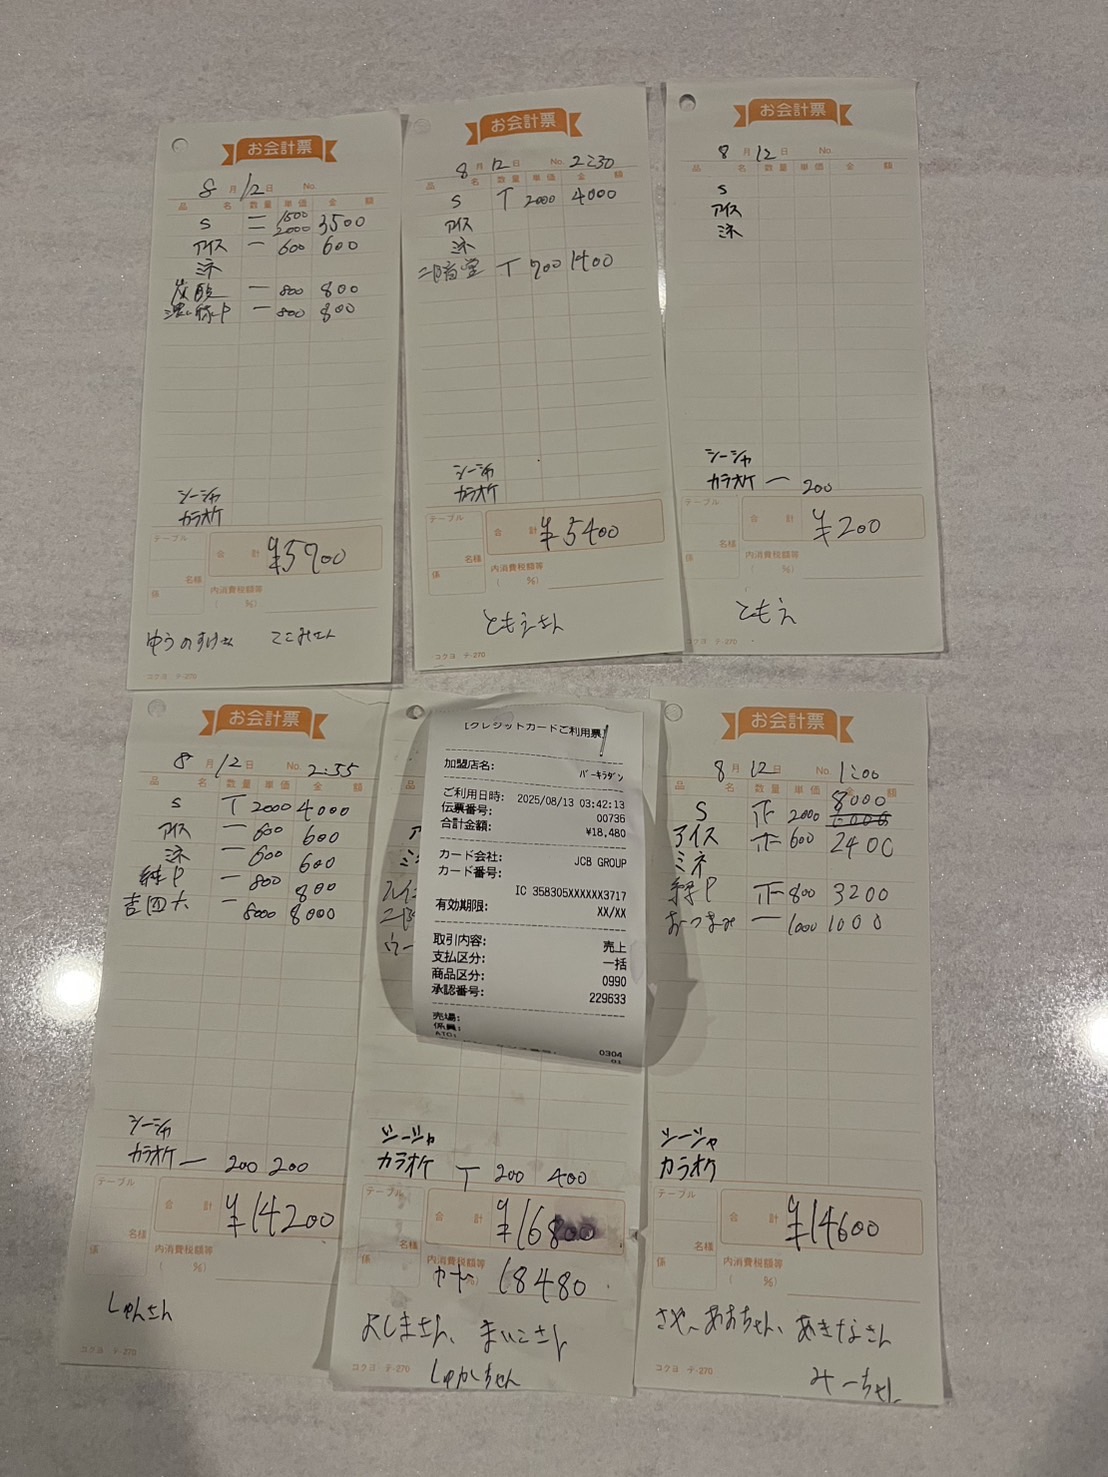 お会計票
8月12日 No.
品 名 数量 単価 金 額
S 一 1500
一 2000 3500
アイス 一 600 600
ミネ
炭酸 一 800 800
濃い緑P 一 800 800
シーシャ
カラオケ
テーブル
合 計 ¥5700
名様
係
内消費税額等
( %)
ゆうのすけさん
コクヨ テ-270
お会計票
8月12日 No. 2:30
品 名 数量 単価 金 額
S T 2000 4000
アイス
ミネ
二階堂 T 700 1400
シーシャ
カラオケ
テーブル
合 計 ¥5400
名様
係
内消費税額等
( %)
ともえさん
コクヨ テ-270
お会計票
8月12日 No.
品 名 数量 単価 金 額
S
アイス
ミネ
シーシャ
カラオケ 一 200
テーブル
合 計 ¥200
名様
係
内消費税額等
( %)
ともえ
コクヨ テ-270
お会計票
8月12日 No. 2:55
品 名 数量 単価 金 額
S T 2000 4000
アイス 一 600 600
ミネ 一 600 600
緑P 一 800 800
吉四六 一 8000 8000
シーシャ
カラオケ 一 200 200
テーブル
合 計 ¥14200
名様
係
内消費税額等
( %)
しゅんさん
コクヨ テ-270
[クレジットカードご利用票]
加盟店名:
バーキラダン
ご利用日時: 2025/08/13 03:42:13
伝票番号: 00736
合計金額: ¥18,480
カード会社: JCB GROUP
カード番号:
IC 358305XXXXXX3717
有効期限: XX/XX
取引内容: 売上
支払区分: 一括
商品区分: 0990
承認番号: 229633
売場:
係員:
ATC:
0304
01
シーシャ
カラオケ T 200 400
テーブル
合 計 ¥16800
名様
係
内消費税額等
( %)
カード 18480
よしまさん、まいこさん
しゅかちゃん
コクヨ テ-270
お会計票
8月12日 No. 1:00
品 名 数量 単価 金 額
S 正 2000 8000
アイス 正 600 2400
ミネ
緑P 正 800 3200
おつまみ 一 1000 1000
シーシャ
カラオケ
テーブル
合 計 ¥14600
名様
係
内消費税額等
( %)
さや、あおちゃん、あきなさん
みーちゃん
コクヨ テ-270